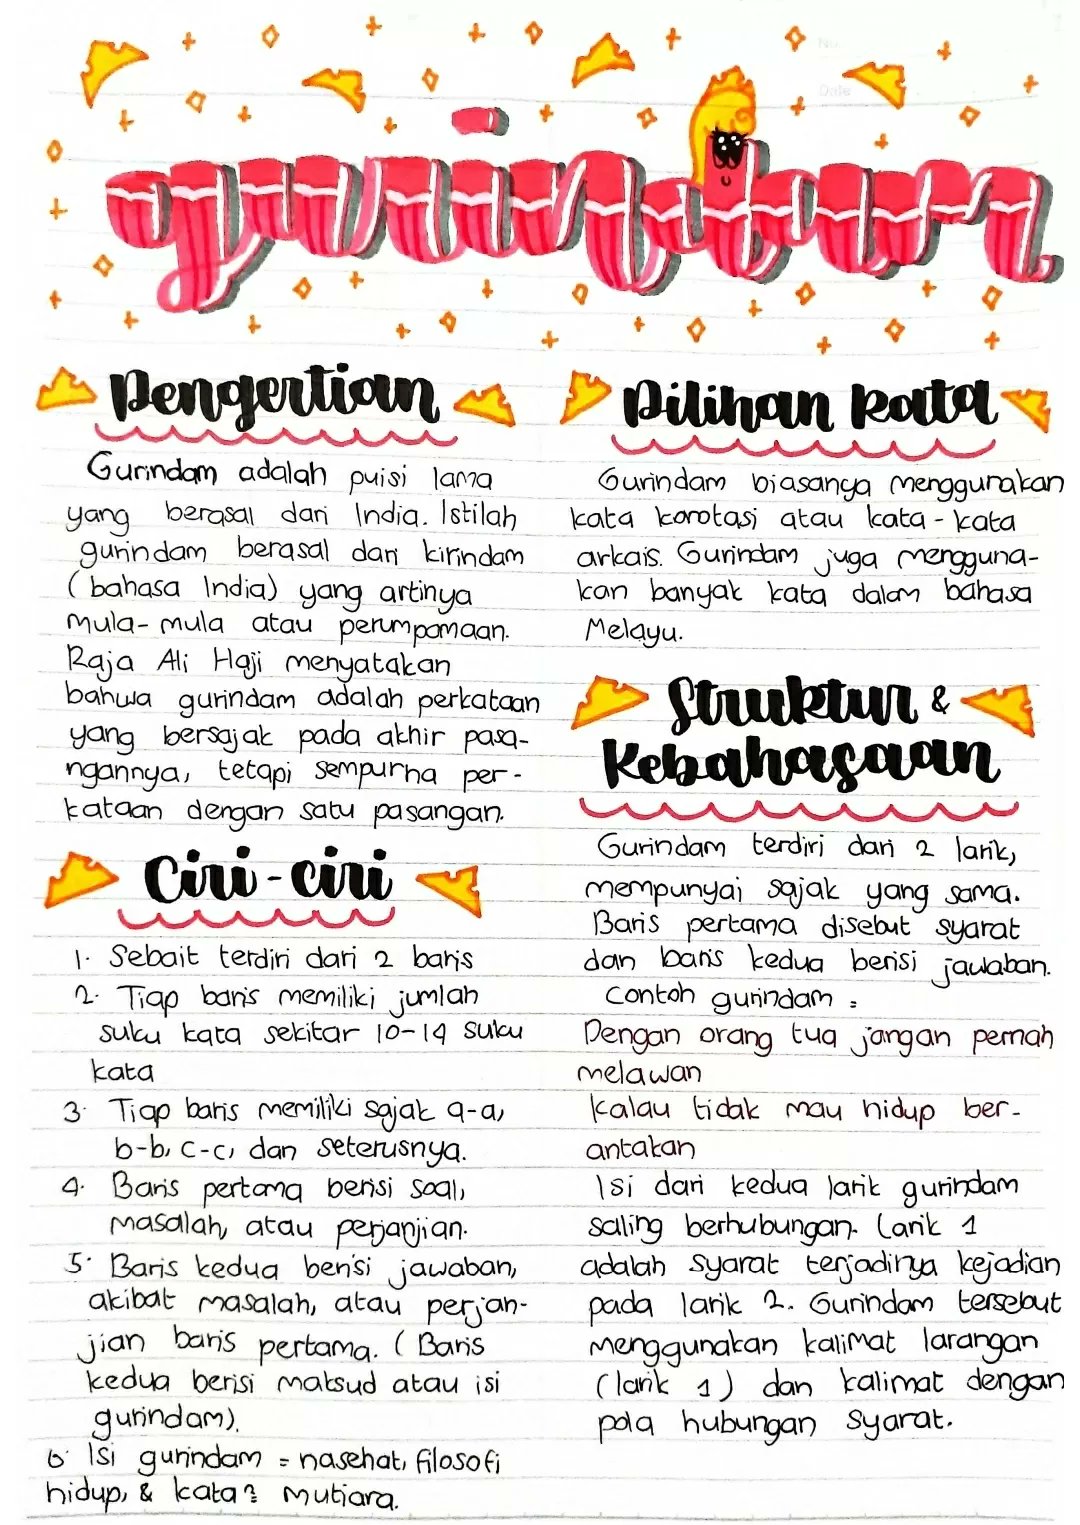 gurindam
No.
Date
Pengertian
Gurindam adalah puisi lama
yang berasal dari India. Istilah
gurindam berasal dari kirindam
(bahasa India) yang artinya
mula-mula atau perumpamaan.
Raja Ali Haji menyatakan
bahwa gurindam adalah perkataan
yang bersajak pada akhir pasa-
ngannya, tetapi sempurna per-
kataan dengan satu pasangan.
Ciri-ciri
1. Sebait terdiri dari 2 baris
2. Tiap baris memiliki jumlah
suku kata sekitar 10-14 suku
kata
3. Tiap baris memiliki sajak a-a,
b-b, c-c, dan seterusnya.
4. Baris pertama berisi soal,
masalah, atau perjanjian.
5. Baris kedua berisi jawaban,
akibat masalah, atau perjan-
jian baris pertama. (Baris
kedua berisi maksud atau isi
gurindam).
6. Isi gurindam = nasehat, filosofi
hidup, & kata² mutiara.
Pilihan Kata
Gurindam biasanya menggunakan
kata korotasi atau kata-kata
arkais. Gurindam juga mengguna-
kan banyak kata dalam bahasa
Melayu.
Struktur &
Kebahasaan
Gurindam terdiri dari 2 larik,
mempunyai sajak yang sama.
Baris pertama disebut syarat
dan baris kedua berisi jawaban.
Contoh gurindam :
Dengan orang tua jangan pernah
melawan
Kalau tidak mau hidup ber-
antakan
Isi dari kedua larik gurindam
saling berhubungan. Larik 1
adalah syarat terjadinya kejadian
pada larik 2. Gurindam tersebut
menggunakan kalimat larangan
(larik 1) dan kalimat dengan
pola hubungan syarat.